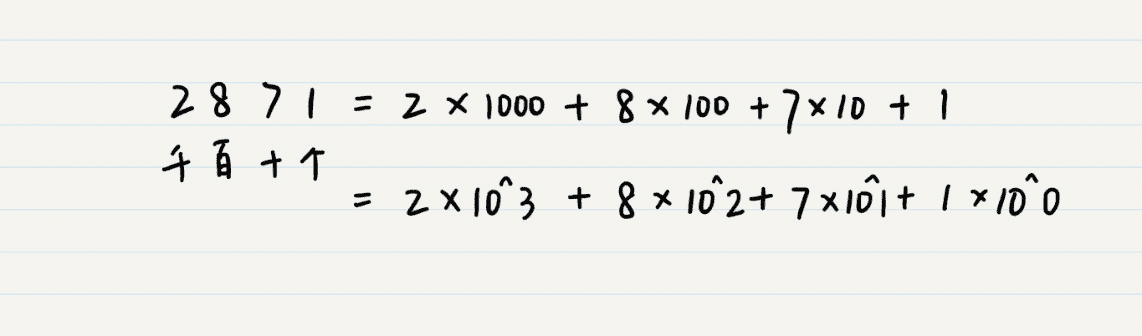 2 8 7 1 = 2 × 1000 + 8 × 100 + 7 × 10 + 1
千 百 十 个
= 2 × 10^3 + 8 × 10^2 + 7 × 10^1 + 1 × 10^0